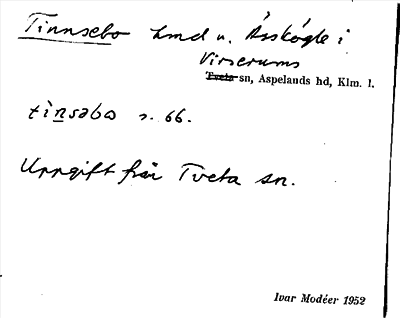 Tinnsebo lmd u. Åsskógle i
Virserums
Tveta sn, Aspelands hd, Klm. l.
tìnsəbo s. 66.
Uppgift från Tveta sn.
Ivar Modéer 1952